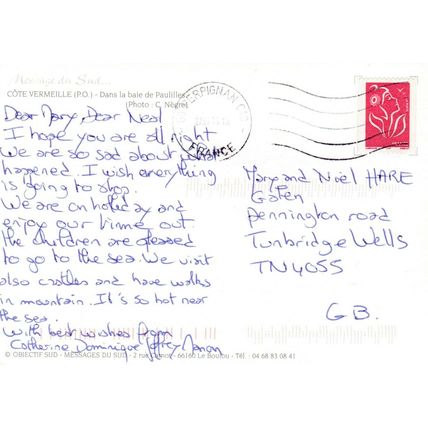 Message du Sud...
CÔTE VERMEILLE (P.O.) - Dans la baie de Paulilles
(Photo : C. Nègre)
PERPIGNAN
FRANCE
Dear Mary, Dear Neal
I hope you are all right
We are so sad about what
happened. I wish everything
is going to stop.
We are on holiday and
enjoy our time out.
the children are pleased
to go to the sea. We visit
also castles and have walks
in mountain. It's so hot near
the sea.
With best wishes from
Catherine Dominique Jeffrey Manon
Mary and Noël HARE
Pennington road
Tunbridge Wells
TN4055
G.B.
© OBJECTIF SUD - MESSAGES DU SUD - 2 rue - 66160 Le Boulou - Tél. : 04 68 83 08 41